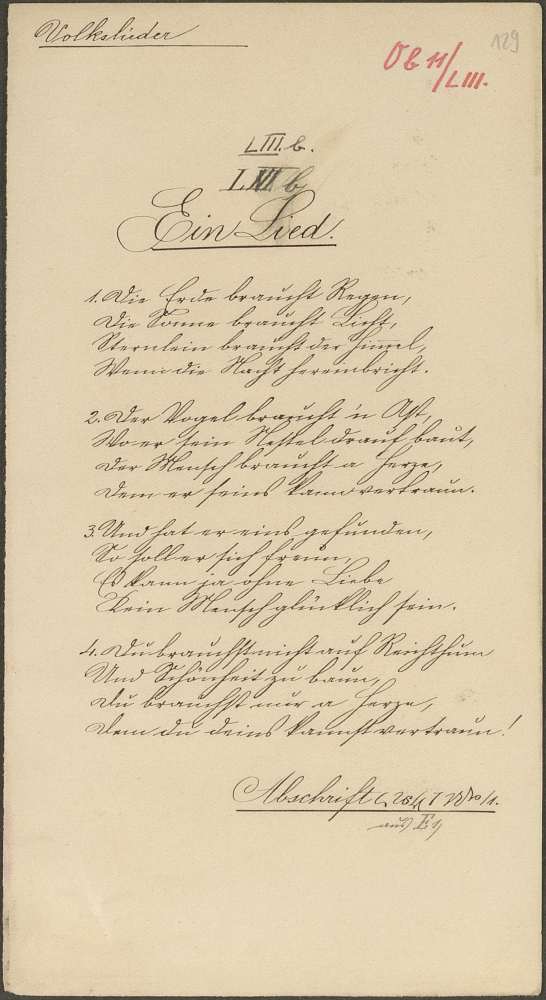 Volkslieder
129
Ob 11/LIII.
LIII. b.
LXII b
Ein Lied.
1. Die Erde braucht Regen,
Die Sonne braucht Licht,
Sternlein braucht der Himmel,
Wenn die Nacht hereinbricht.
2. Der Vogel braucht 'n Ast,
Wo er sein Nestel drauf baut,
Der Mensch braucht a Herze,
Dem er seins kann vertraun.
3. Und hat er eins gefunden,
So soll er sich freun,
Es kann ja ohne Liebe
Kein Mensch glücklich sein.
4. Du brauchst nicht auf Reichthum
Und Schönheit zu baun,
Du brauchst nur a Herze,
Dem du deins kannst vertraun!
Abschrift
aus E